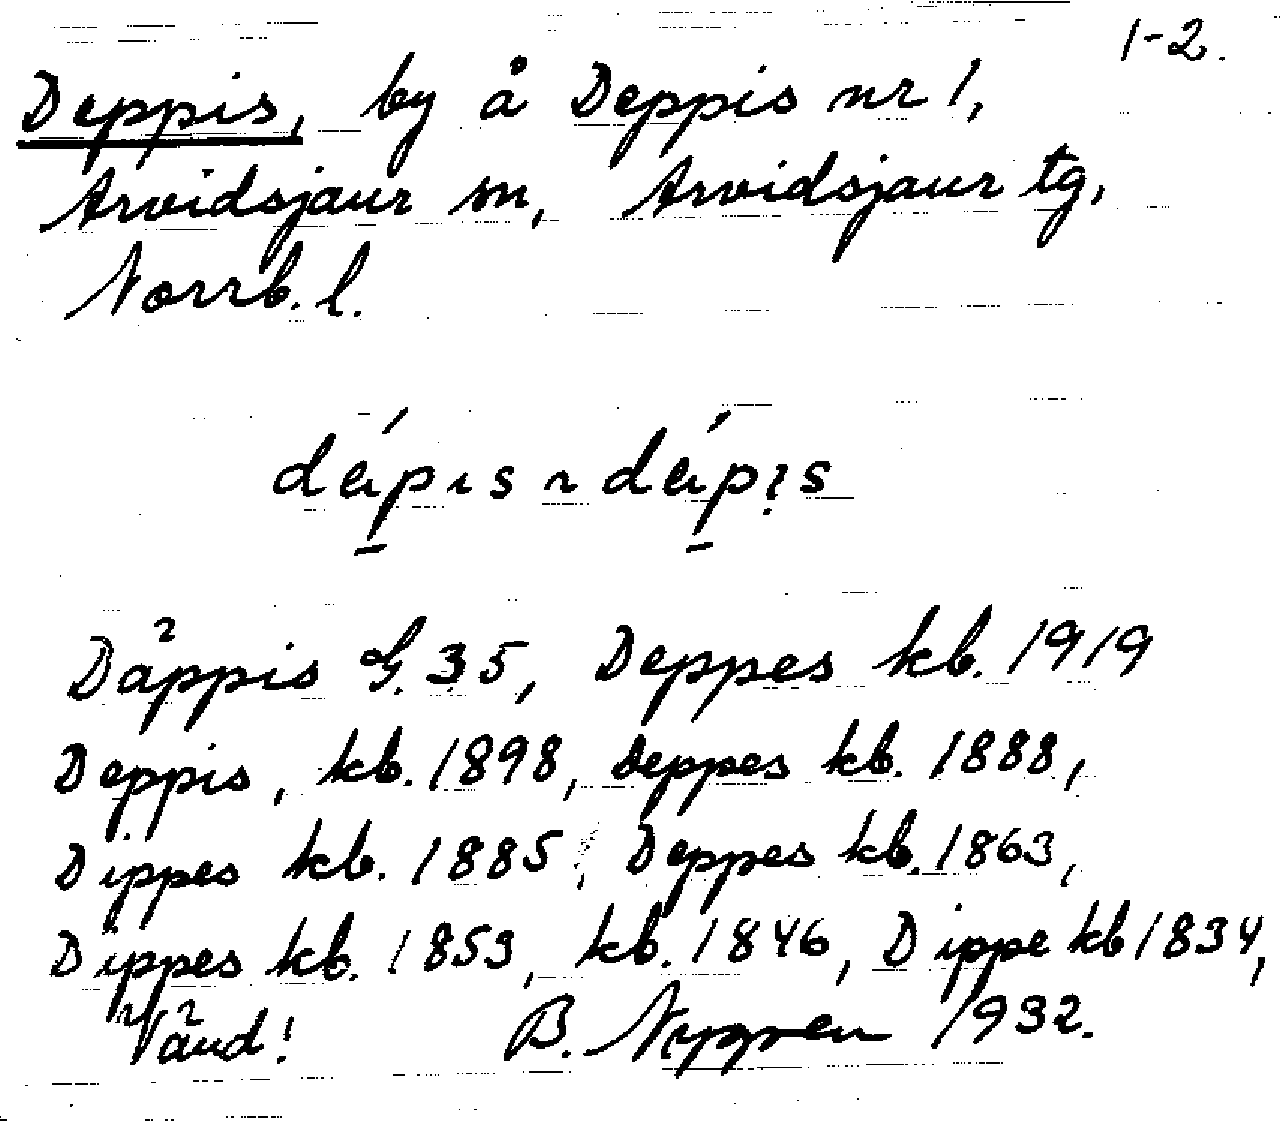 1-2.
Deppis, by å Deppis nr 1,
Arvidsjaur sn, Arvidsjaur tg,
Norrb. l.
Däppis G. 35, Deppes kb. 1919
Deppis, kb. 1898, Deppes kb. 1888,
Dippes kb. 1885, Deppes kb. 1863,
Dippes kb. 1853, kb. 1846, Dippe kb 1834,
Vänd! B. Nygren 1932.